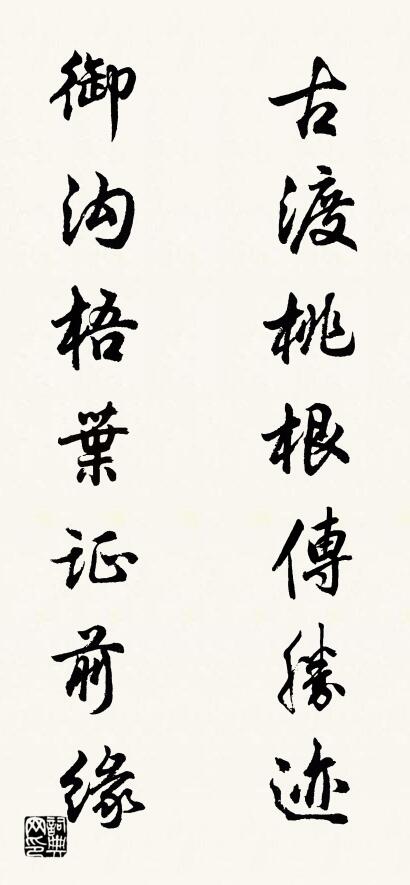 古渡桃根傳勝迹
御沟梧葉证前緣
詞典网印